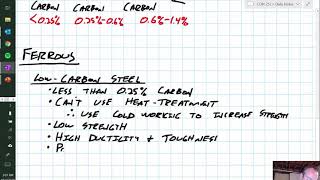 CARBON CARBON CARBON
<0.25% 0.25%-0.6% 0.6%-1.4%
FERROUS
LOW-CARBON STEEL
• LESS THAN 0.25% CARBON
• CAN'T USE HEAT-TREATMENT
∴ USE COLD WORKING TO INCREASE STRENGTH
• LOW STRENGTH
• HIGH DUCTILITY & TOUGHNESS
• P